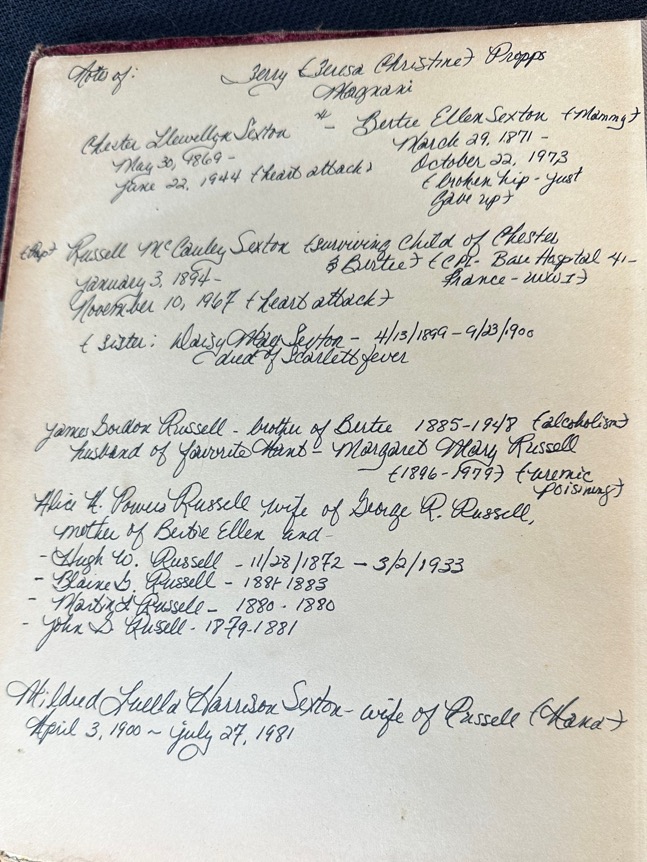 Note of: Terry (Teresa Christine) Propps
Magnani
Chester Llewellyn Sexton - Bertie Ellen Sexton (Mammy)
May 30, 1869 - March 29, 1871 -
June 22, 1944 (heart attack) October 22, 1973
(broken hip - just
gave up)
(Pap) Russell McCauley Sexton (surviving child of Chester
& Bertie) (Cpl. Base Hospital 41 -
January 3, 1894 - France - WWI)
November 10, 1967 (heart attack)
(sister: Daisy May Sexton - 4/13/1899 - 9/23/1900
(died of Scarlett fever
James Gordon Russell - brother of Bertie 1885-1948 (alcoholism)
husband of favorite Aunt - Margaret Mary Russell
(1896-1979) (uremic
poisining)
Alice A. Powers Russell wife of George R. Russell,
mother of Bertie Ellen and -
- Hugh W. Russell - 11/28/1872 - 3/2/1933
- Blaine G. Russell - 1881 1883
- Martin L. Russell - 1880 - 1880
- John S Russell - 1879-1881
Mildred Luella Harrison Sexton - wife of Russell (Nana)
April 3, 1900 ~ July 27, 1981